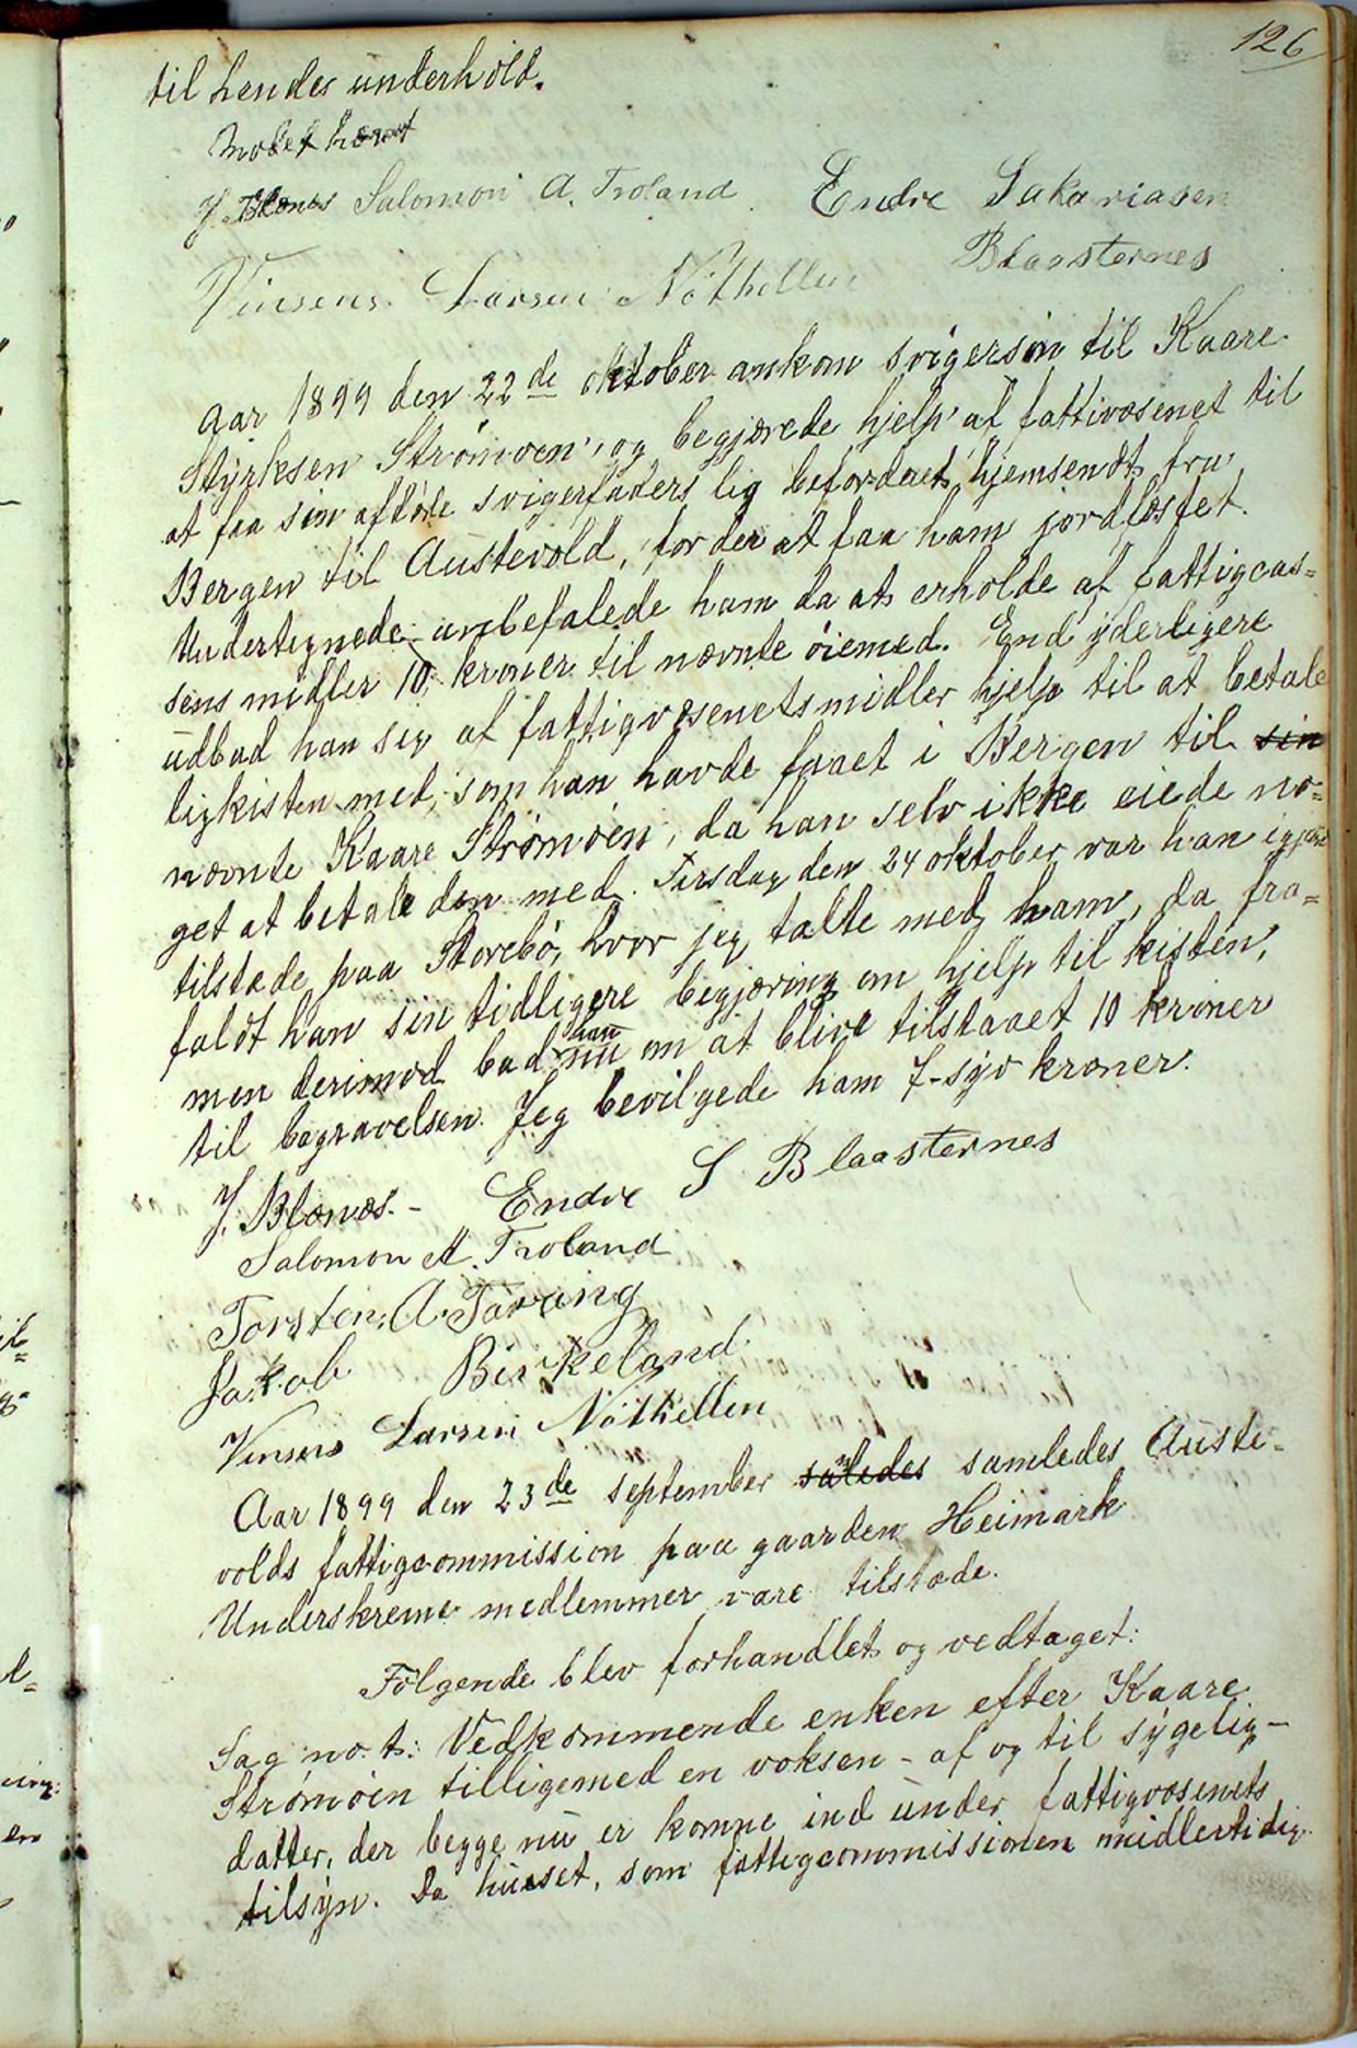 126
til hendes underhold.
Mødet hævet
J. Blænes Salomon A. Troland Endre Sakariasen
Blaasternes
Vinsens Larsen Nöthellen
Aar 1899 den 22de oktober ankom svigersön til Kaare
Styrksen Strømöen, og begjærede hjelp af fattivæsenet til
at faa sin afdöde svigerfaders lig befordret hjemsendt fra
Bergen til Austevold, for der at faa ham jordfæstet.
Undertegnede anbefalede ham da at erholde af fattigcas-
sens midler 10 kroner til nævnte öiemed. End yderligere
udbad han sig af fattigvæsenets midler hjelp til at betale
ligkisten med, som han havde faaet i Bergen til sin
nævnte Kaare Strømöen, da han selv ikke eiede no-
get at betale den med. Tirsdag den 24 oktober var han igjen
tilstæde paa Storebö, hvor jeg talte med ham, da fra-
faldt han sin tidligere begjæring om hjelp til kisten,
men derimod bad han nu om at blive tilstaaet 10 kroner
til begravelsen. Jeg bevilgede ham 7-syv kroner.
J. Blænæs.- Endre S Blaasternes
Salomon A. Troland
Torsten A. Taranig
Jakob Birkeland
Vinsens Larsen Nöthellen
Aar 1899 den 23de september saledes samledes Auste-
volds fattigcommission paa gaarden Heimark
Underskrevne medlemmer vare tilstæde.
Fölgende blev forhandlet og vedtaget:
Sag no. 1.: Vedkommende enken efter Kaare
Strømöen tilligemed en voksen - af og til sygelig-
datter, der begge nu er komne ind under fattigvæsenets
tilsyn. Da huset, som fattigcommissionen midlertidig